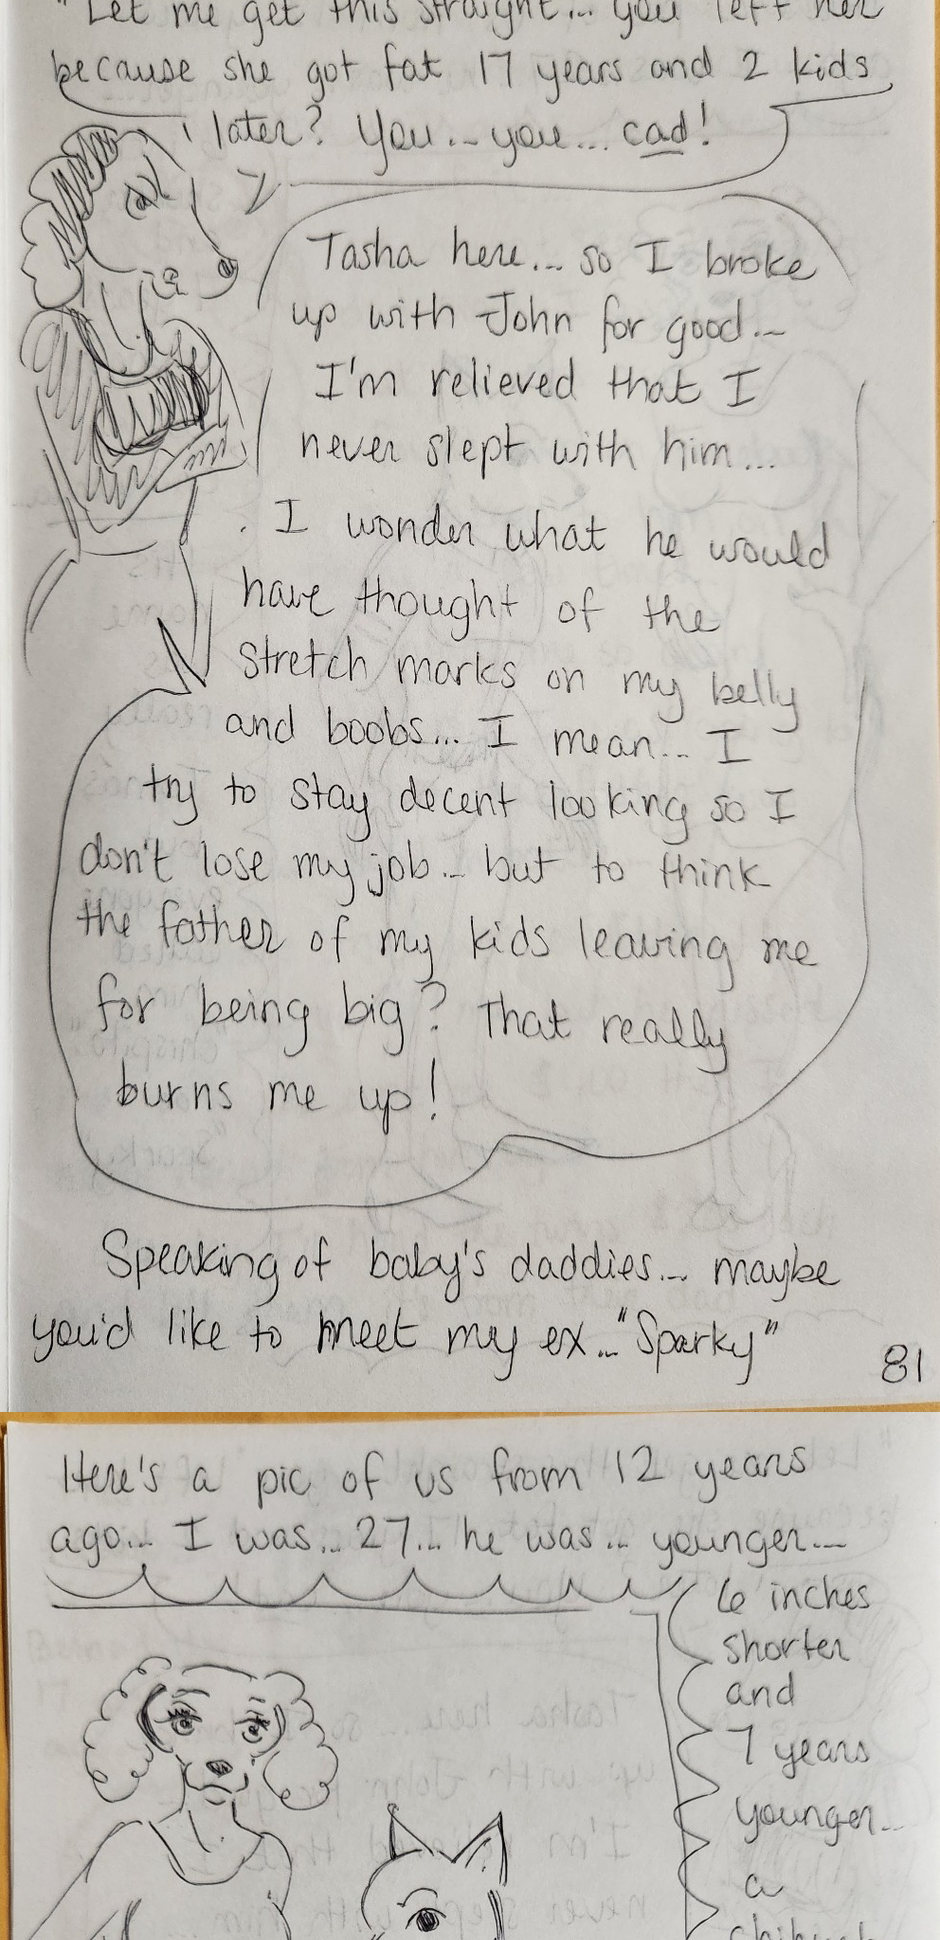 "Let me get this straight... you left her
because she got fat 17 years and 2 kids
later? You... you... cad!
Tasha here... so I broke
up with John for good...
I'm relieved that I
never slept with him...
. I wonder what he would
have thought of the
stretch marks on my belly
and boobs... I mean... I
try to stay decent looking so I
don't lose my job... but to think
the father of my kids leaving me
for being big? That really
burns me up!
Speaking of baby's daddies... maybe
you'd like to meet my ex... "Sparky"
81
Here's a pic of us from 12 years
ago... I was... 27... he was... younger...
6 inches
shorter
and
7 years
younger...
a